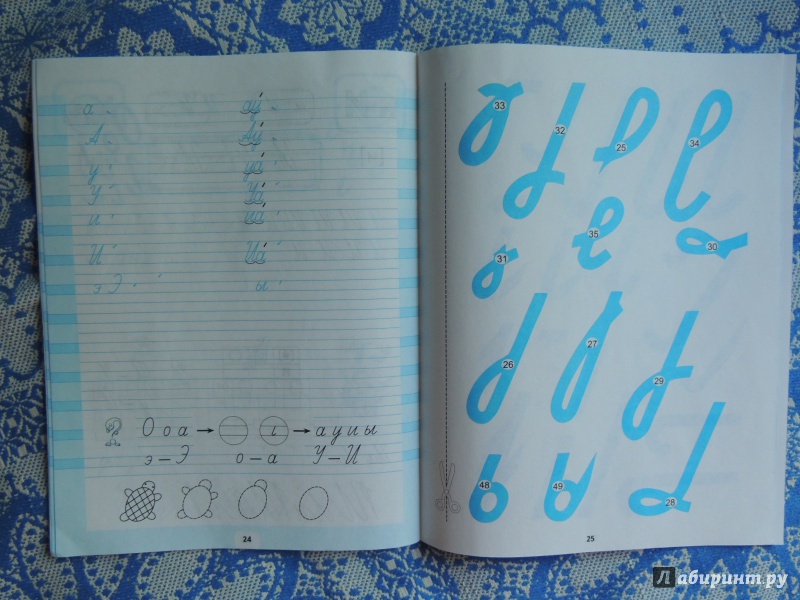 а ау́
А Ау́
у уа́
У Уа́
и иа́
И Иа́
э Э ы
О о а → → а у и ы
э – Э о – а У – И
24
33
32
25
34
35
30
31
26
27
29
48
49
28
25
Лабиринт.ру